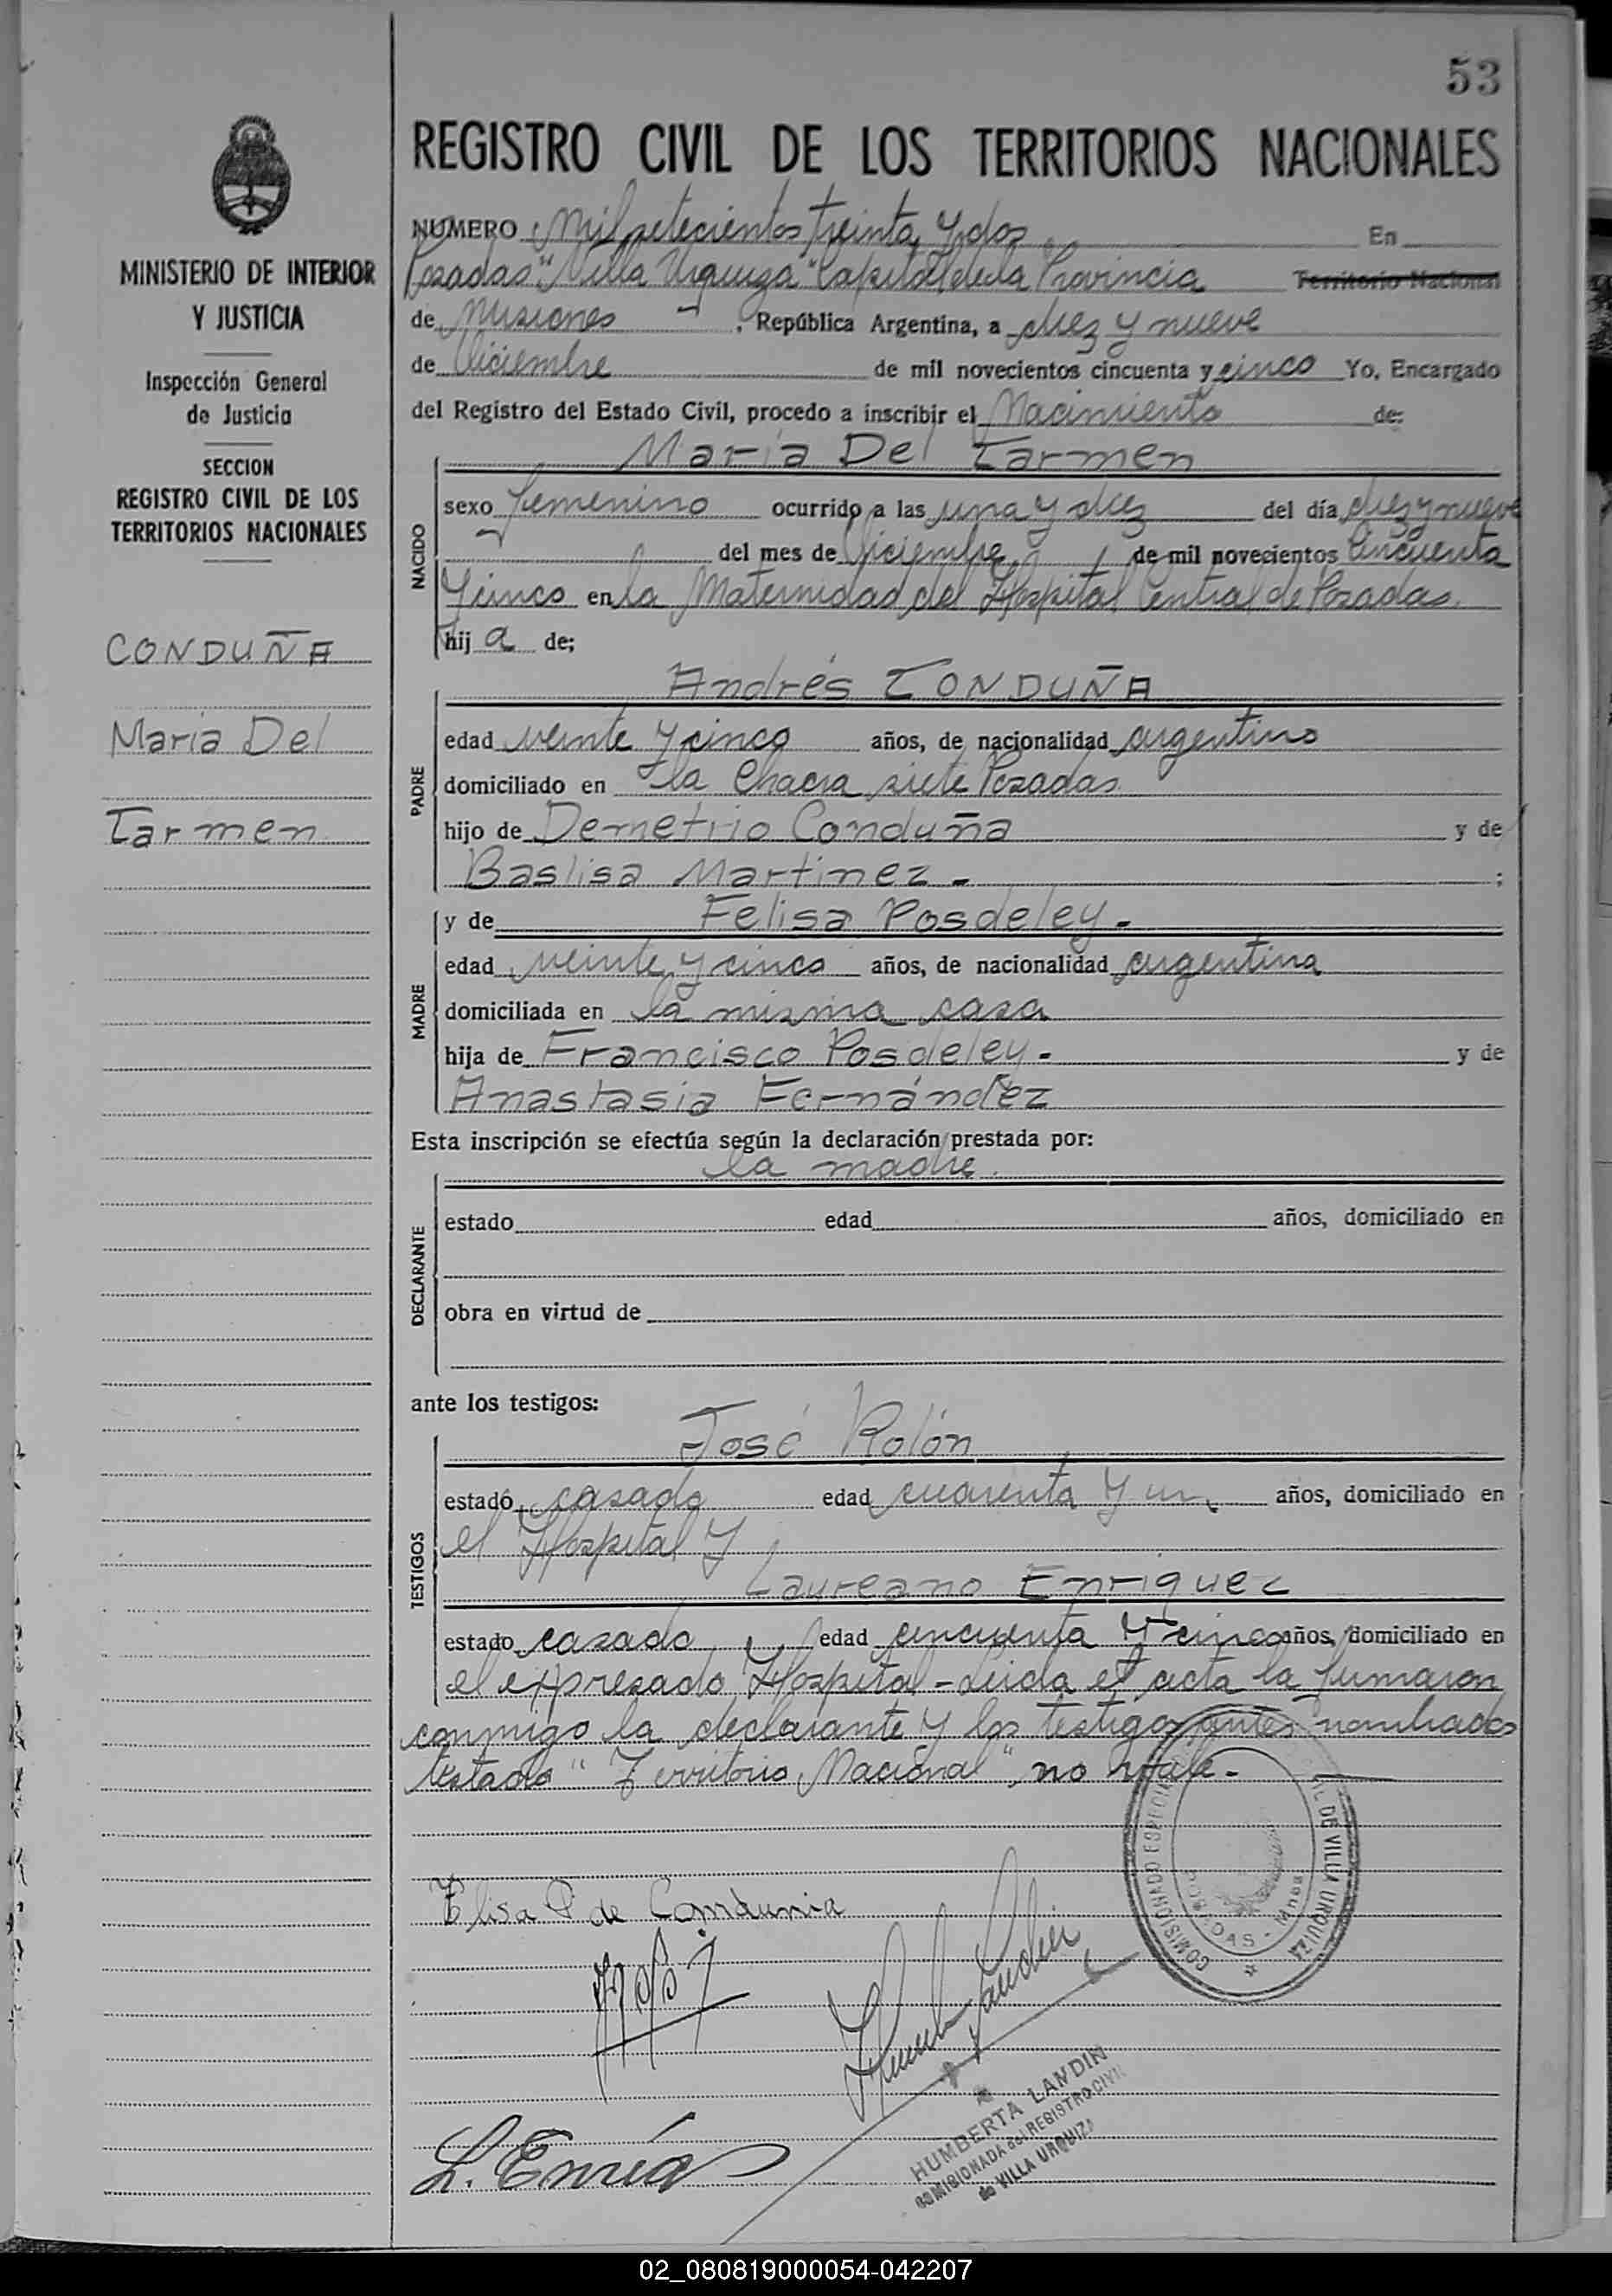 53
REGISTRO CIVIL DE LOS TERRITORIOS NACIONALES
MINISTERIO DE INTERIOR
Y JUSTICIA
Inspección General
de Justicia
SECCION
REGISTRO CIVIL DE LOS
TERRITORIOS NACIONALES
CONDUÑA
María Del
Carmen
NUMERO Mil setecientos treinta y dos En
Posadas "Villa Urquiza" Capital de la Provincia Territorio Nacional
de Misiones, República Argentina, a diez y nueve
de Diciembre de mil novecientos cincuenta y cinco Yo, Encargado
del Registro del Estado Civil, procedo a inscribir el Nacimiento de:
María Del Carmen
NACIDO
sexo femenino ocurrido a las una y diez del día diez y nueve
del mes de Diciembre de mil novecientos cincuenta
y cinco en la Maternidad del Hospital Central de Posadas.
hij a de;
Andrés CONDUÑA
PADRE
edad veinte y cinco años, de nacionalidad argentino
domiciliado en la Chacra siete Posadas
hijo de Demetrio Conduña y de
Baslisa Martinez - ;
y de Felisa Posdeley -
MADRE
edad veinte y cinco años, de nacionalidad argentina
domiciliada en la misma casa
hija de Francisco Posdeley - y de
Anastasia Fernández
Esta inscripción se efectúa según la declaración prestada por:
la madre.
DECLARANTE
estado edad años, domiciliado en
obra en virtud de
ante los testigos:
José Rolón
TESTIGOS
estado casado edad cuarenta y un años, domiciliado en
el Hospital y
Laureano Enriquez
estado casado, edad cincuenta y cinco años, domiciliado en
el expresado Hospital - Leida el acta la firmaron
conmigo la declarante y los testigos antes nombrados
testado "Territorio Nacional", no vale. -
COMISIONADO ESPECIAL DE VILLA URQUIZA
POSADAS - Mnes
Elisa P de Condunia
L. Enría
HUMBERTA LANDIN
COMISIONADA del REGISTRO CIVIL
de VILLA URQUIZA
02_080819000054-042207